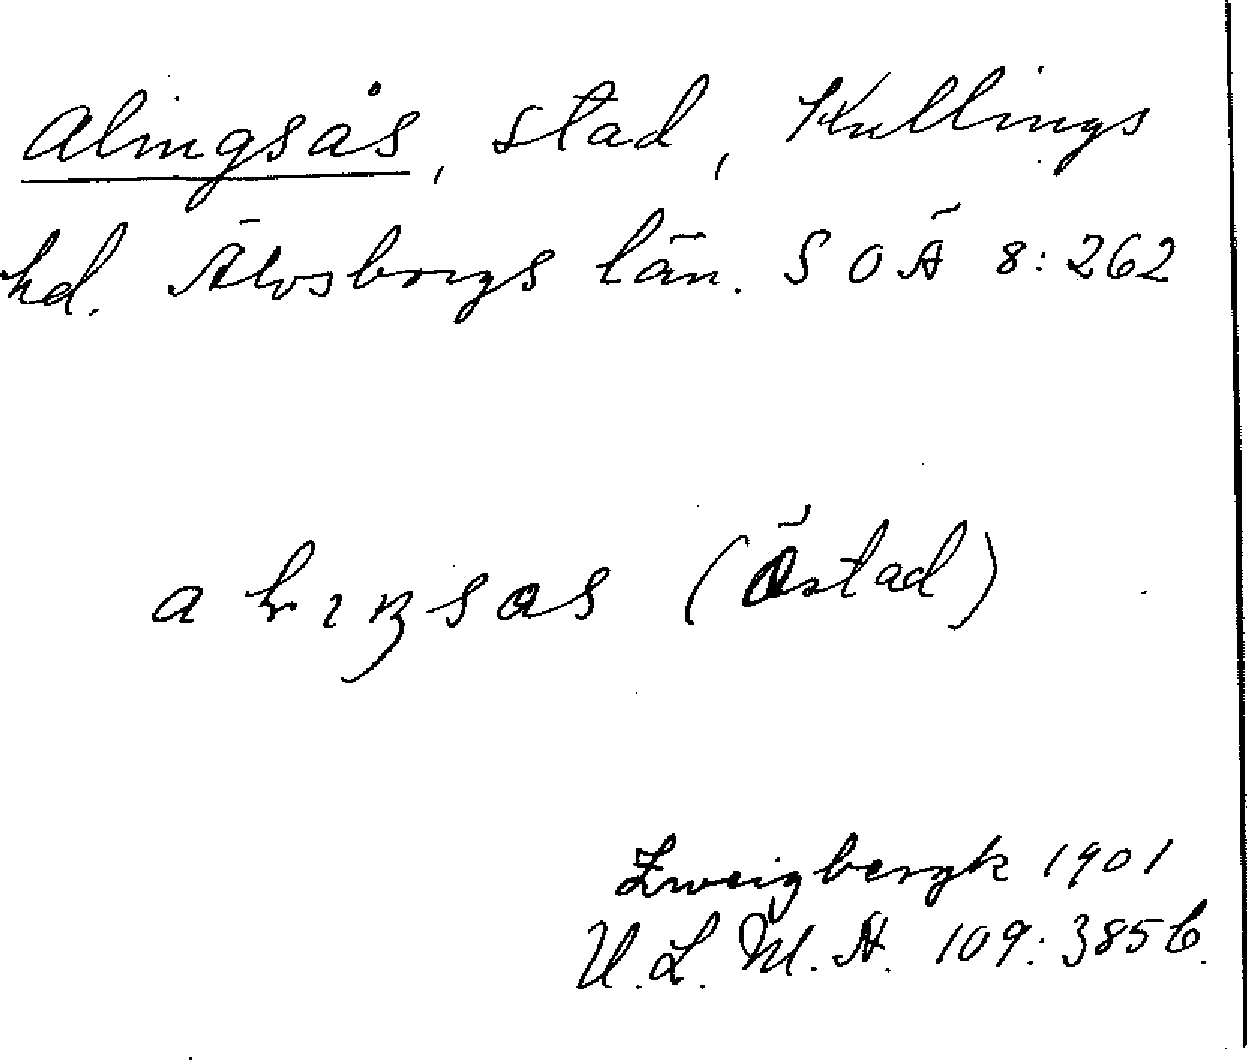 Alingsås, stad, Kullings
hd. Älvsborgs län. S O Ä 8:262
(Östad)
Zweigbergk 1901
U.L.M.A. 109:385 b.